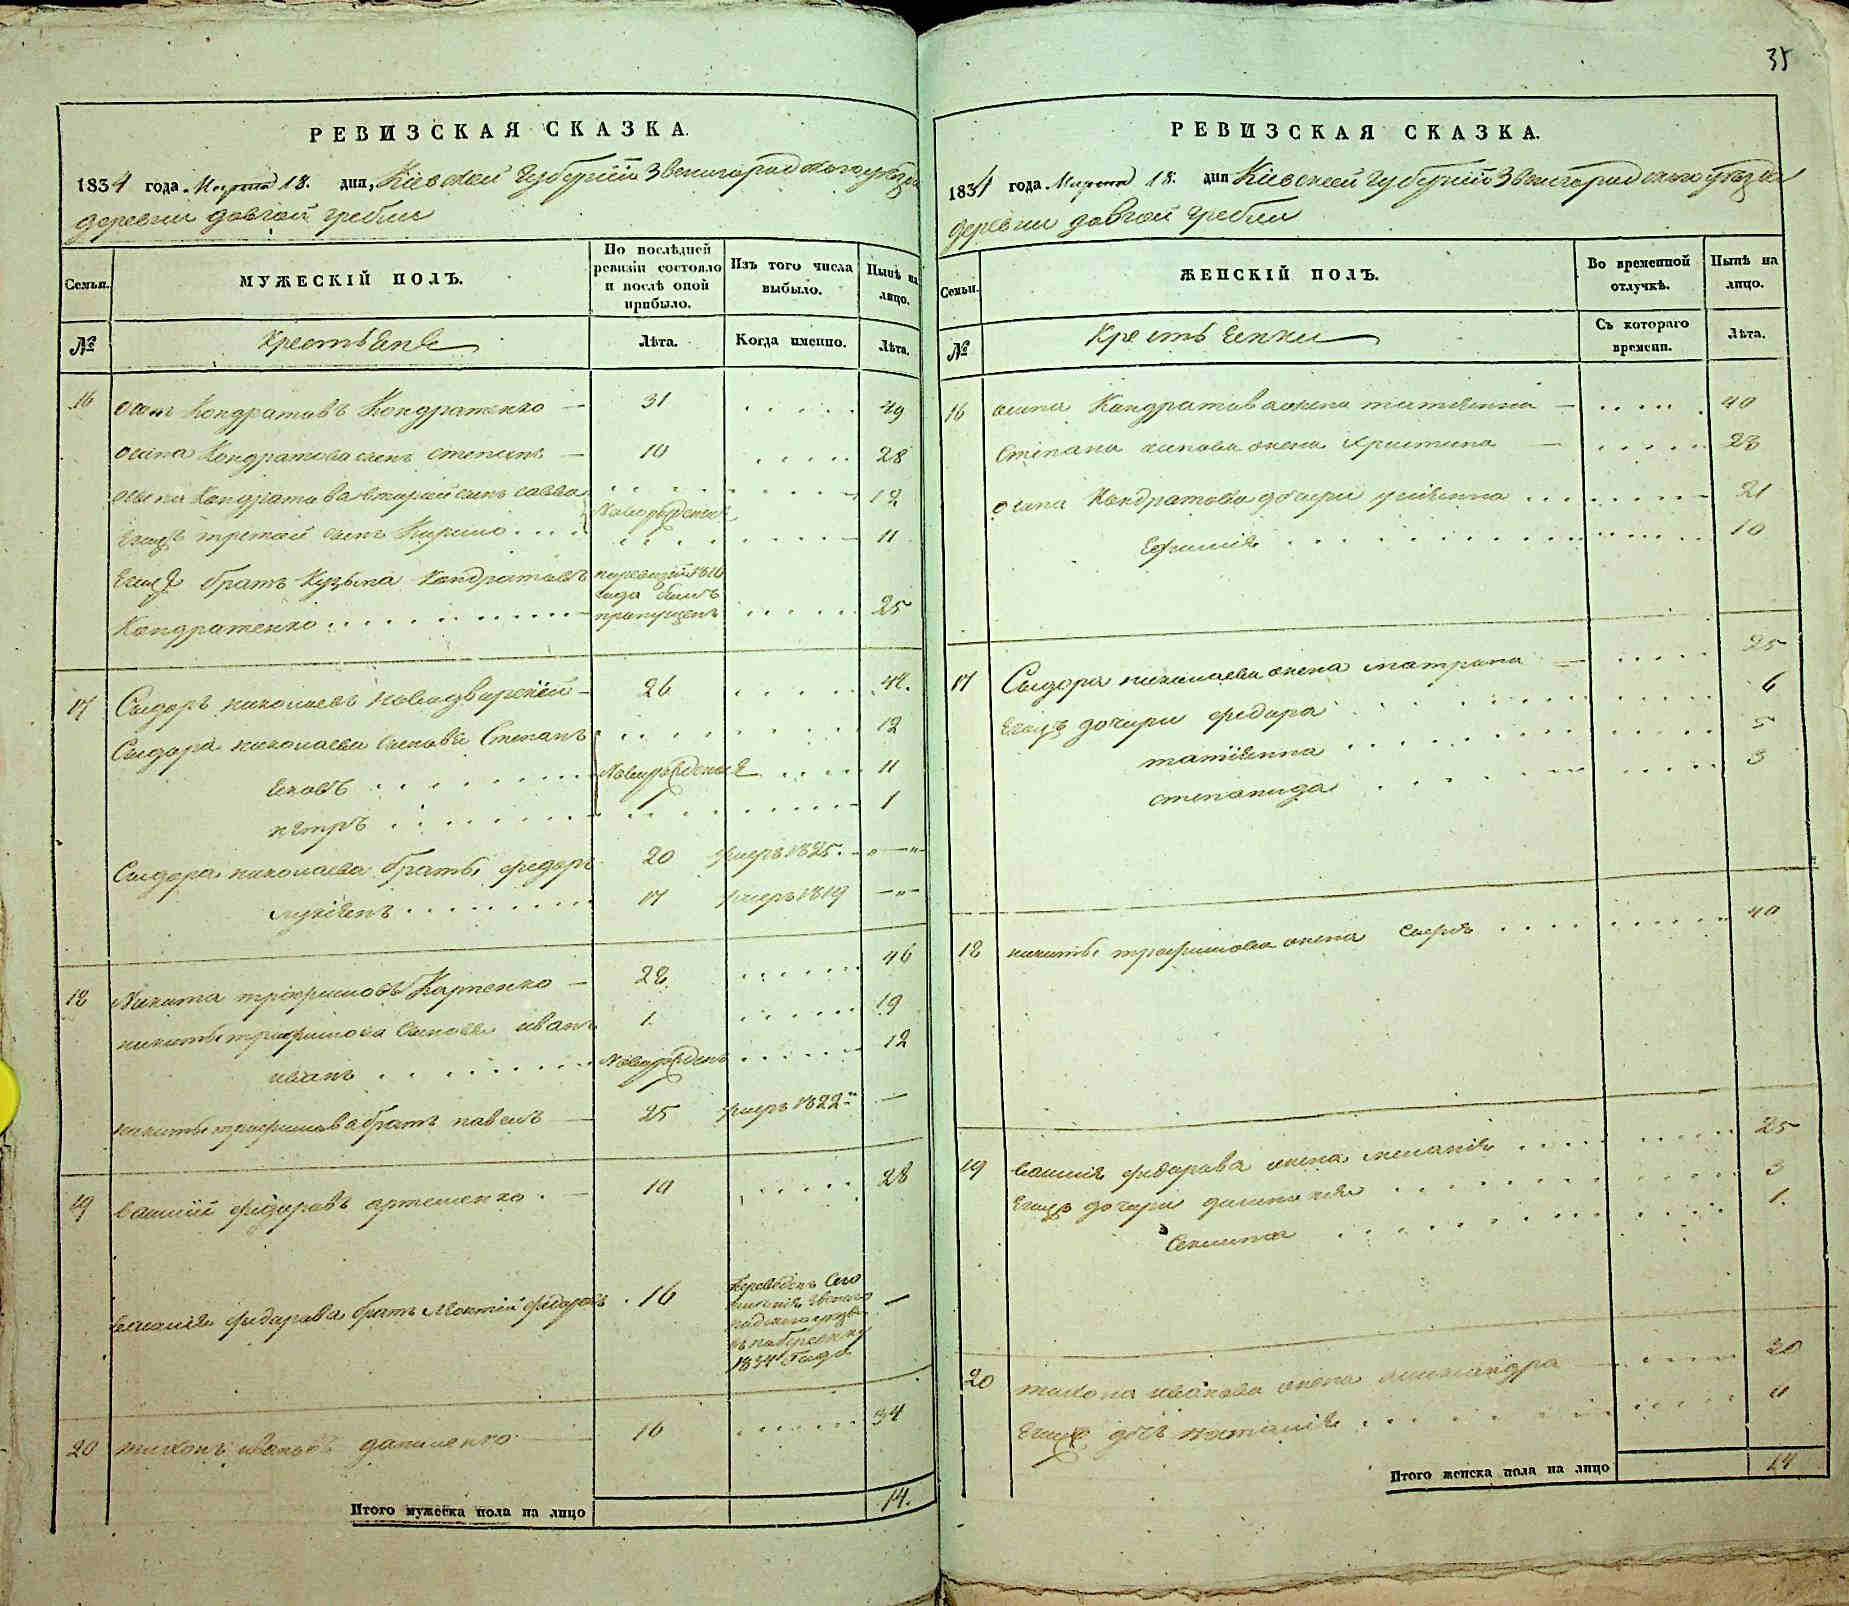 35
РЕВИЗСКАЯ СКАЗКА.
1834 года Марта 18. дня, Кіевской Губерніи Звенигородского уезда
деревни довгой гребли
Семьи.
МУЖЕСКІЙ ПОЛЪ.
По послѣдней ревизіи состояло и послѣ оной прибыло.
Изъ того числа выбыло.
Нынѣ на лицо.
№
Крестьяне
Лѣта.
Когда именно.
Лѣта.
16 осип Кондратовъ Кондратенко 31 49
осипа Кондратова сынъ степанъ 10 28
осипа Кондратова вторый сынъ савва 12
Новорожденые
Егожъ третой сынъ Кирило 11
Егожъ братъ Кузьма Кондратовъ
Кондратенко
по ревизіи 1816 года былъ пропущенъ
25
17 Сыдоръ николаевъ новодворскій 26 44.
Сыдора николаева сыновья Степанъ 12
Яковъ Новорожденые 11
петръ 1
Сыдора николаева братья федоръ 20 умеръ 1825.
лукіянъ 17 умеръ 1819
18 Никита трофимовъ Карпенко 28 46
никиты трофимова сыновья иванъ 1. 19
иванъ Новорожденъ 12
никиты трофимова братъ павелъ 25 умеръ 1822
19 василій федоровъ артеменко 10 28
василія федорова братъ Леонтій федоровъ 16
переведенъ
1834 Года
20 тихонъ ивановъ даниленко 16 34
Итого мужеска пола на лицо 14.
РЕВИЗСКАЯ СКАЗКА.
1834 года Марта 18. дня Кіевской Губерніи Звенигородского уезда
деревни довгой гребли
Семьи.
ЖЕНСКІЙ ПОЛЪ.
Во временной отлучкѣ.
Нынѣ на лицо.
№
Крестьянки
Съ котораго времени.
Лѣта.
16 осипа Кондратова жена татіянна 40
Степана осипова жена Христина 23
осипа Кондратова дочери уліянна 21
Ефимія 10
17 Сыдора николаева жена матрона 35
Егожъ дочери федора 6
татіянна 5
степанида 3
18 никиты трофимова жена 40
19 василія федорова жена меланія 25
Егожъ дочери 3
1.
20 тихона иванова жена александра 20
Егожъ дочь наталія
Итого женска пола на лицо 14